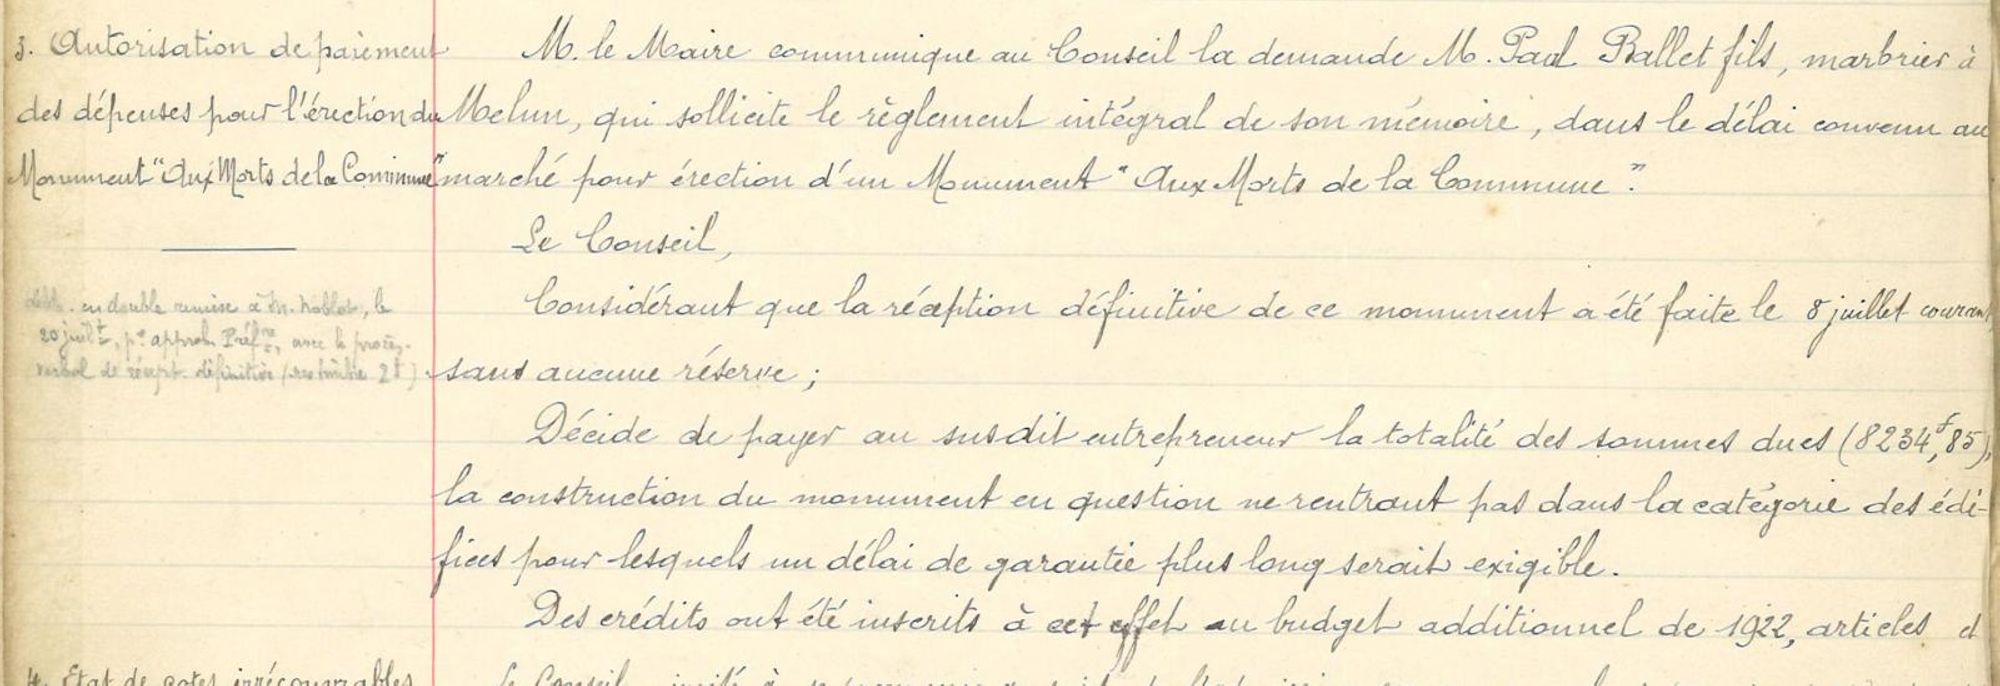 3. Autorisation de paiement
des dépenses pour l'érection du
Monument "Aux Morts de la Commune"
en double remise à M. Noblot, le
20 juillt, pr approbn Préfre, avec le procès-
verbal de récept. définitive (
M. le Maire communique au Conseil la demande M. Paul Ballet fils, marbrier à
Melun, qui sollicite le règlement intégral de son mémoire, dans le délai convenu au
marché pour érection d'un Monument "Aux Morts de la Commune".
Le Conseil,
Considérant que la réception définitive de ce monument a été faite le 8 juillet courant
sans aucune réserve ;
Décide de payer au susdit entrepreneur la totalité des sommes dues (8234f,85),
la construction du monument en question ne rentrant pas dans la catégorie des édi-
fices pour lesquels un délai de garantie plus long serait exigible.
Des crédits ont été inscrits à cet effet au budget additionnel de 1922, articles et
4. Etat de cotes irrécouvrables
Le Conseil, invité à